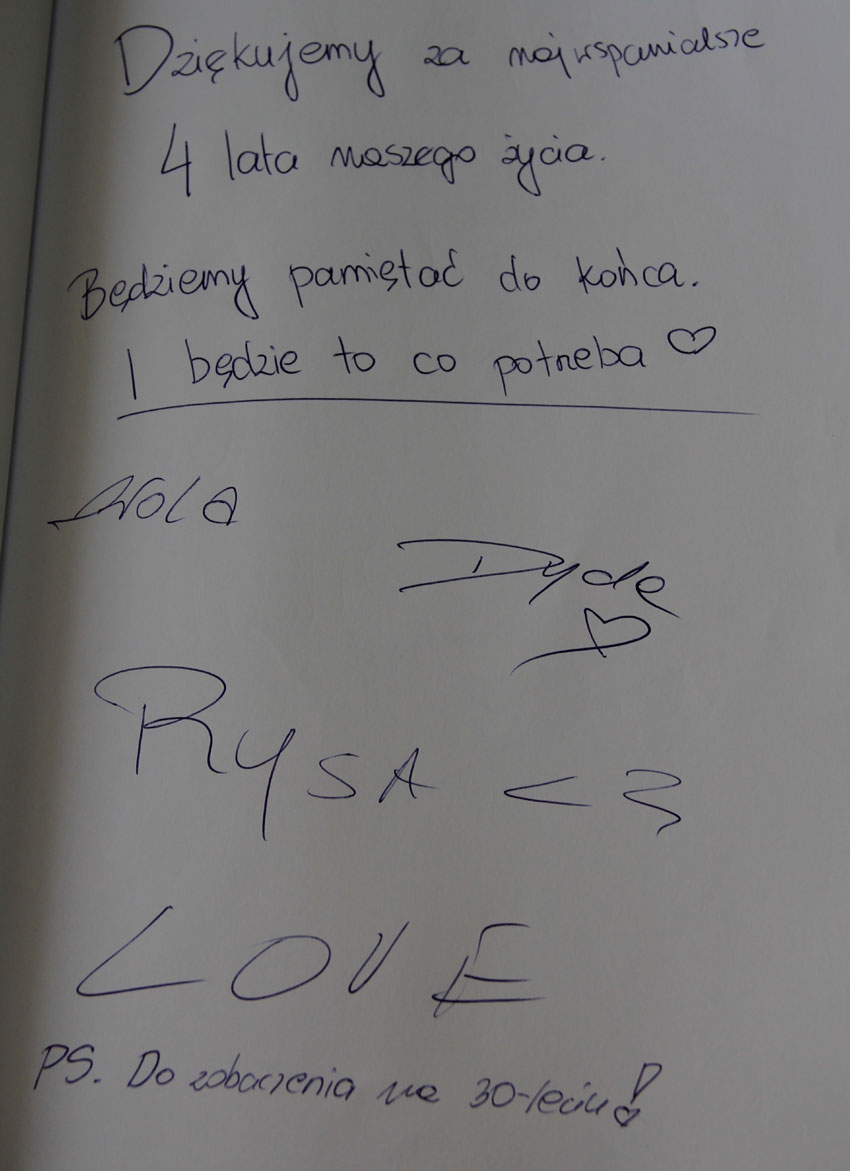 Dziękujemy za najwspanialsze
4 lata naszego życia.
Będziemy pamiętać do końca.
I będzie to co potrzeba ♡
Wola
Dyda
♡
RYSA <3
LOVE
PS. Do zobaczenia na 30-leciu!